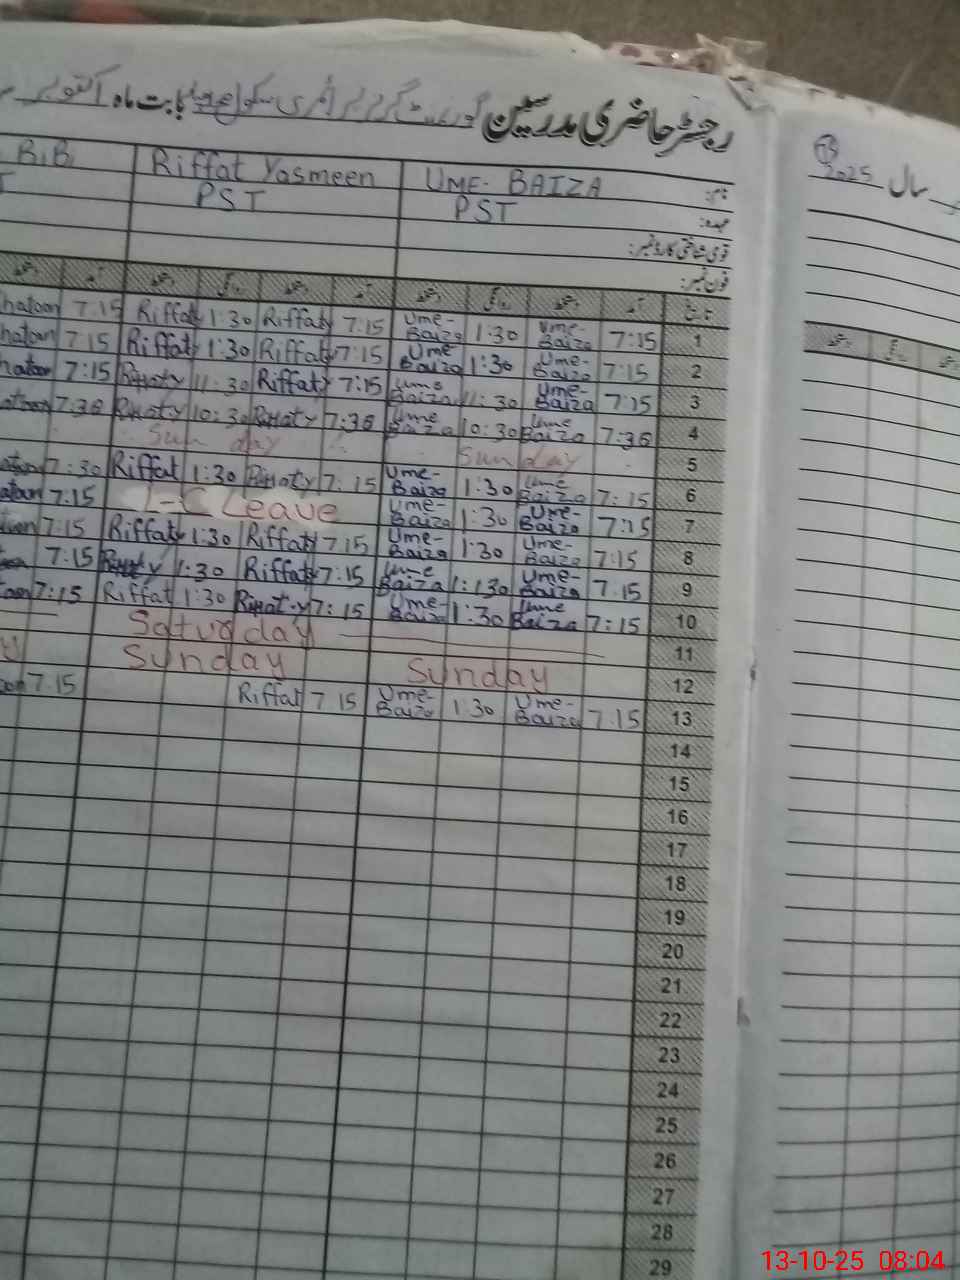 رجسٹر حاضری مدرسین گورنمنٹ گرلز پرائمری سکول بابت ماہ اکتوبر
سال 2025
نام: UME- BAIZA Riffat Yasmeen B.B
عہدہ: PST PST
قومی شناختی کارڈ نمبر:
فون نمبر:
تاریخ آمد دستخط روانگی دستخط آمد دستخط روانگی دستخط آمد دستخط
hatoon 7:15 Riffat 1:30 Riffaty 7:15 Ume-Baiza 1:30 Ume-Baiza 7:15 1
hatoon 7:15 Riffaty 1:30 Riffaty 7:15 Ume Baiza 1:30 Ume-Baiza 7:15 2
hatoon 7:15 Riffaty 11:30 Riffaty 7:15 Ume Baiza 11:30 Ume-Baiza 7:15 3
7:30 Riffaty 10:30 Riffaty 7:30 Ume Baiza 10:30 Ume Baiza 7:30 4
Sun day Sunday 5
7:30 Riffat 1:30 Riffaty 7:15 Ume-Baiza 1:30 Ume Baiza 7:15 6
7:15 Leave Ume-Baiza 1:30 Ume-Baiza 7:15 7
7:15 Riffaty 1:30 Riffaty 7:15 Ume-Baiza 1:30 Ume-Baiza 7:15 8
7:15 1:30 Riffaty 7:15 Ume Baiza 1:130 Ume-Baiza 7:15 9
7:15 Riffat 1:30 Riffaty 7:15 Ume-Baiza 1:30 Ume Baiza 7:15 10
Saturday 11
Sunday Sunday 12
7:15 Riffat 7:15 Ume-Baiza 1:30 Ume-Baiza 7:15 13
14
15
16
17
18
19
20
21
22
23
24
25
26
27
28
29
13-10-25 08:04